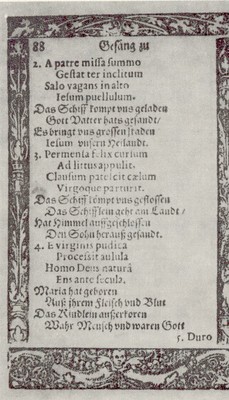 88 Gesäng zu
2. A patre missa summo
Gestat ter inclitum
Salo vagans in alto
Iesum puellulum.
Das Schiff kompt vns geladen
Gott Vatter hats gesandt/
Es bringt vns grossen staden
Iesum vnsern Heilandt.
3. Permensa felix cursum
Ad littus appulit.
Clausum patescit cælum
Virgoque parturit.
Das Schiff kompt vns geflossen
Das Schifflein geht am Landt/
Hat Himmel auffgeschlossen
Den Sohn herauß gesandt.
4. E virginis pudica
Processit aulula
Homo Deus naturâ
Ens ante secula.
Maria hat geboren
Auß jhrem Fleisch vnd Blut
Das Kindlein außerkoren
Wahr Mensch vnd waren Gott
5. Duro